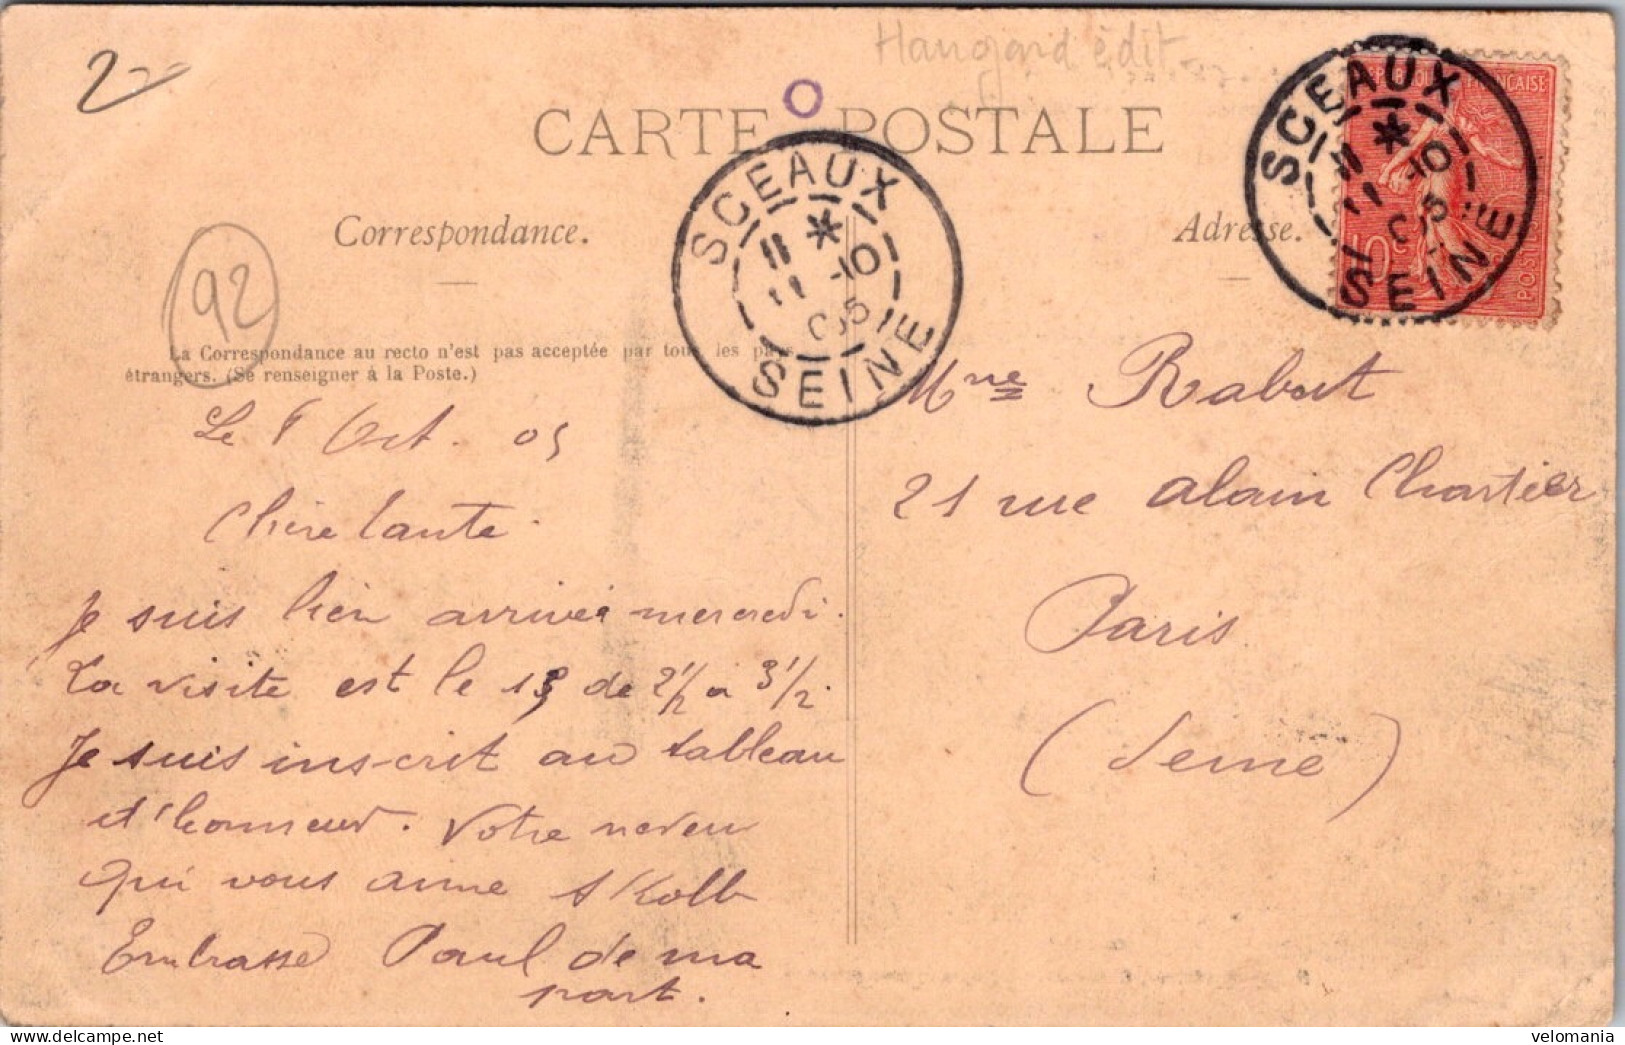 2
Hangard édit
CARTE POSTALE
SCEAUX
11 * 10
11 05
SEINE
SCEAUX
11 * 10
11 05
SEINE
RÉPUBLIQUE FRANÇAISE
10c
POSTES
Correspondance.
Adresse.
92
La Correspondance au recto n'est pas acceptée par tous les pays
étrangers. (Se renseigner à la Poste.)
Le Oct. 05
Chère tante.
Je suis bien arrivé mercredi.
La visite est le 13 de 2 1/2 à 3 1/2.
Je suis inscrit au tableau
d'honneur. Votre neveu
qui vous aime Kolb
Embrasse Paul de ma
part.
Mme Rabut
21 rue Alain Chartier
Paris
(Seine)
velomania